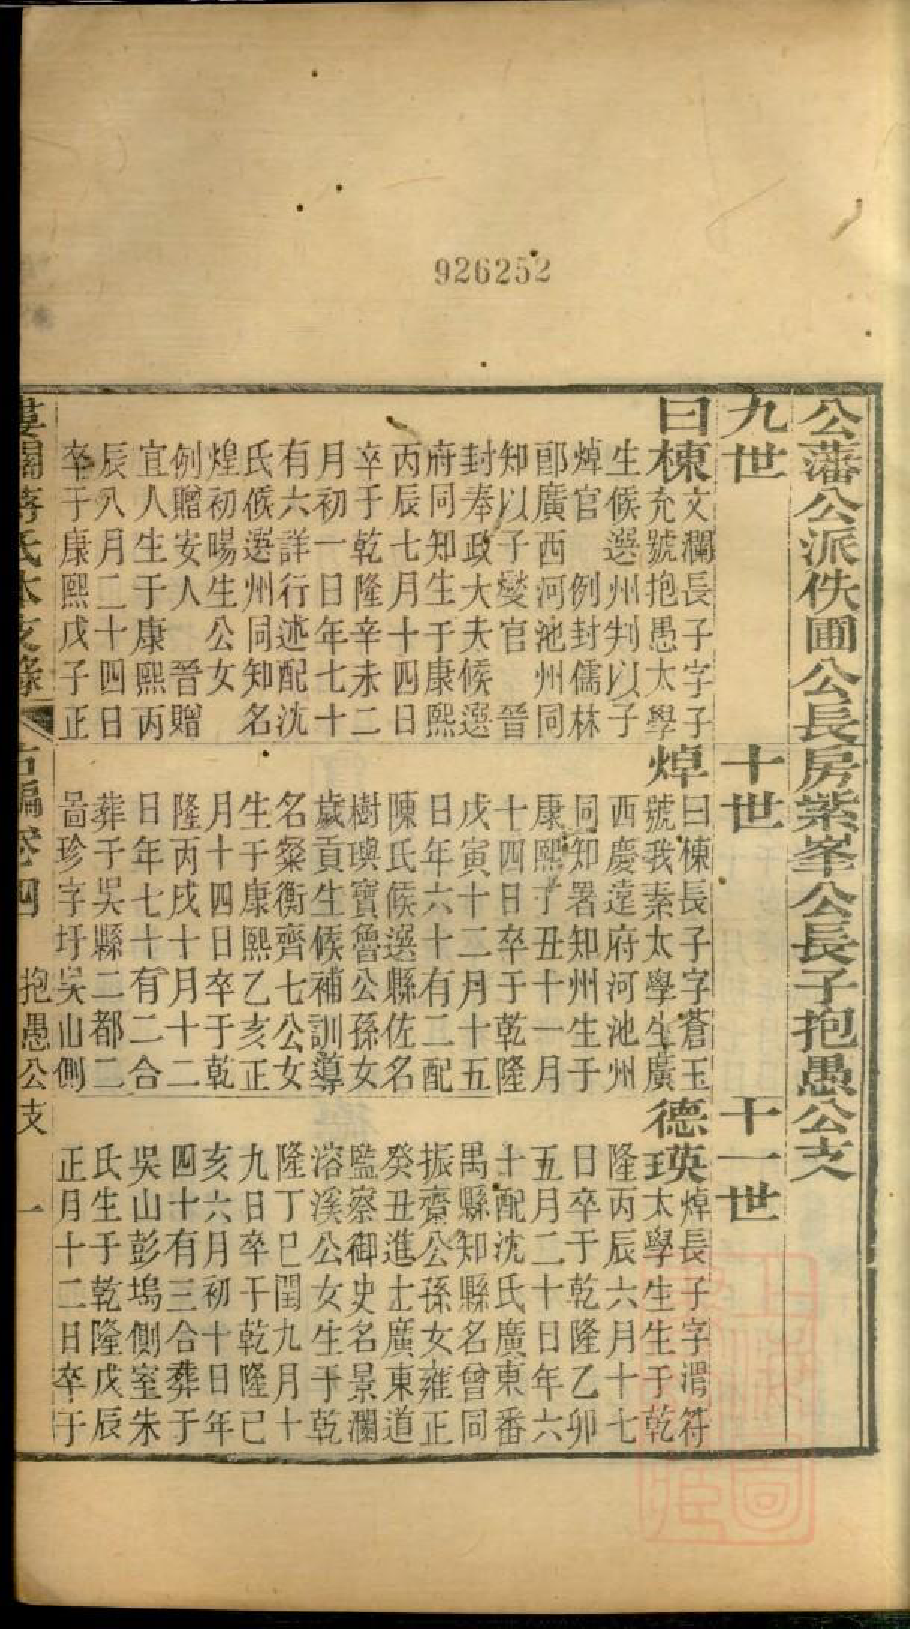 926252
公藩公派佚圃公長房紫峯公長子抱愚公支
九世
十世
十一世
曰棟
文瀾長子字子
充號抱愚太學
生候選州判以子
焯官 例封儒林
郎廣西河池州同
知以子燮官 晉
封奉政大夫候選
府同知生于康熙
丙辰七月十四日
卒于乾隆辛未二
月初一日年七十
有六詳行述配沈
氏候選州同知名
煌初暘生公女
例贈安人 晉贈
宜人生于康熙丙
辰八月二十四日
卒于康熙戊子正
焯
曰棟長子字蒼玉
號我素太學生廣
西慶遠府河池州
同知署知州生于
康熙丁丑十一月
十四日卒于乾隆
戊寅十二月十五
日年六十有二配
陳氏候選縣佐名
樹璵寶魯公孫女
歲貢生候補訓導
名粲衡齊七公女
生于康熙乙亥正
月十四日卒于乾
隆丙戌十月十二
日年七十有二合
葬于吳縣二都二
啚珍字圩吳山側
德瑛
焯長子字渭符
太學生生于乾
隆丙辰六月十七
日卒于乾隆乙卯
五月二十日年六
十配沈氏廣東番
禺縣知縣名曾同
振齋公孫女雍正
癸丑進士廣東道
監察御史名景瀾
溶溪公女生于乾
隆丁巳閏九月十
九日卒于乾隆己
亥六月初十日年
四十有三合葬于
吳山彭塢側室朱
氏生于乾隆戊辰
正月十二日卒于
婁關蔣氏本支錄 右編卷四 抱愚公支 一